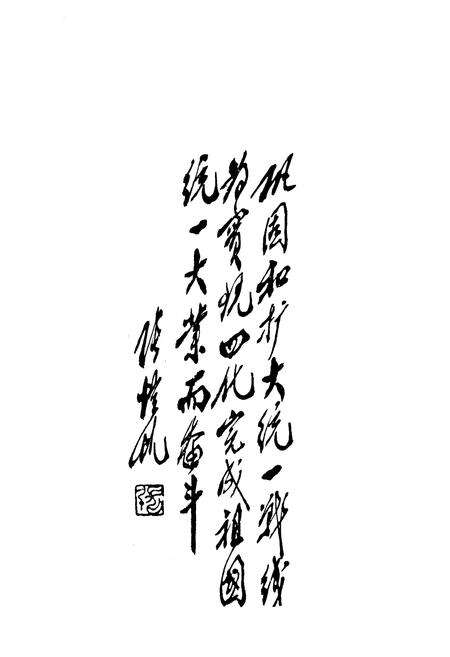 巩固和扩大统一战线
为实现四化完成祖国
统一大业而奋斗
张恺帆